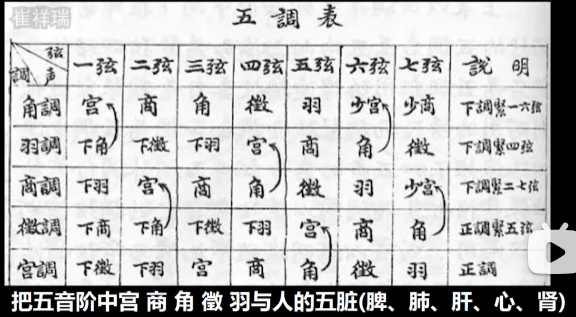 崔祥瑞
五調表
弦
調 声 一弦 二弦 三弦 四弦 五弦 六弦 七弦 説明
角調 宫 商 角 徵 羽 少宫 少商 下調緊一六弦
羽調 下角 下徵 下羽 宫 商 角 徵 下調緊四弦
商調 下羽 宫 商 角 徵 羽 少宫 下調緊二七弦
徵調 下商 下角 下徵 下羽 宫 商 角 正調緊五弦
宫調 下徵 下羽 宫 商 角 徵 羽 正調
把五音阶中宫 商 角 徵 羽与人的五脏(脾、肺、肝、心、肾)